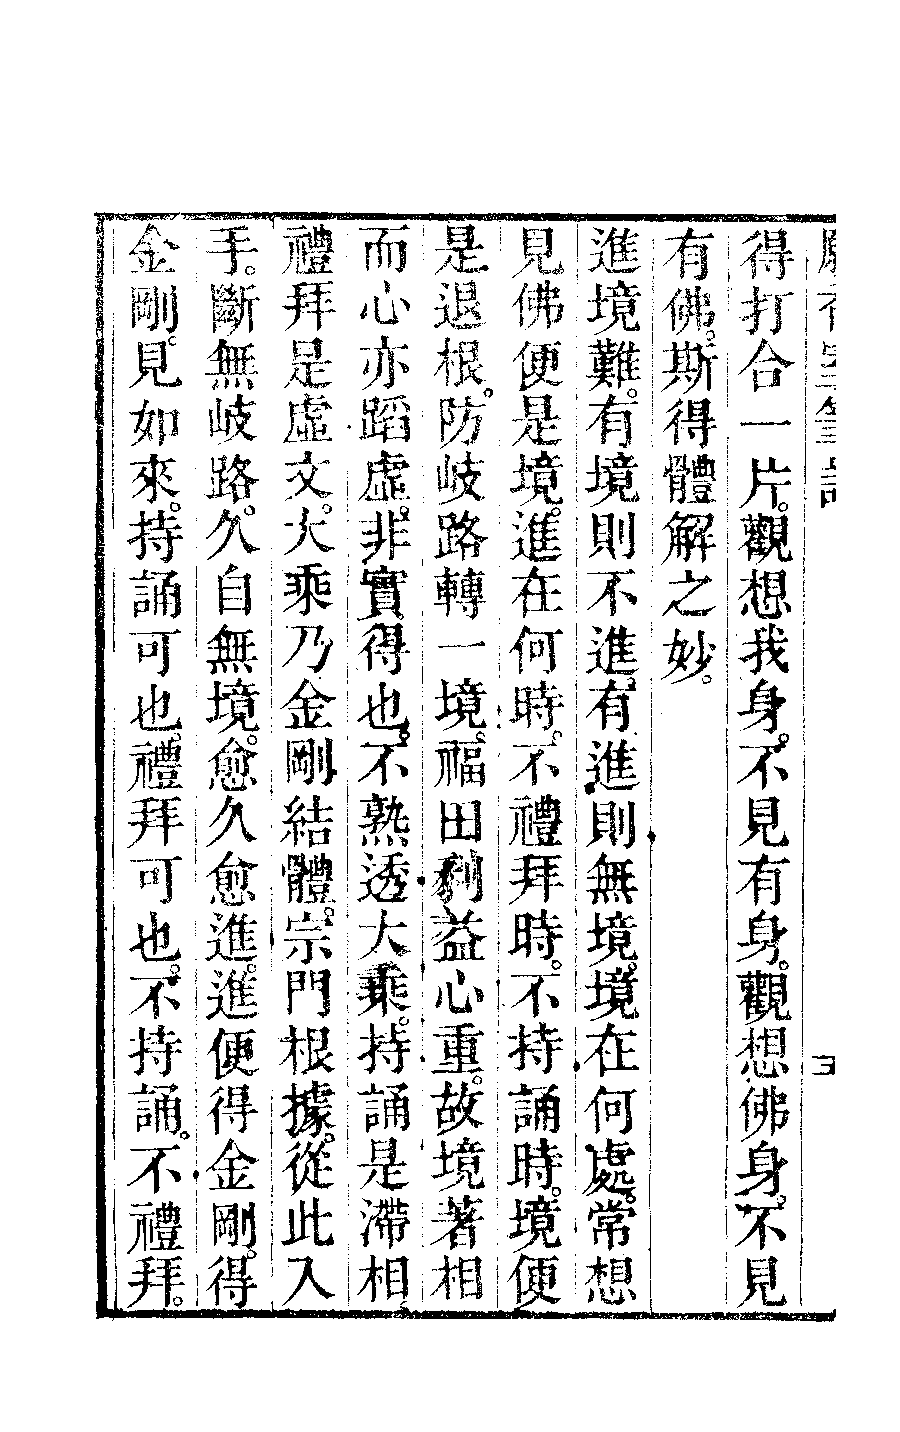 得打合一片。觀想我身。不見有身。觀想佛身。不見
有佛。斯得體解之妙。
進境難。有境則不進。有進則無境。境在何處。常想
見佛便是境。進在何時。不禮拜時。不持誦時。境便
是退根。防岐路轉一境。福田利益心重。故境著相
而心亦蹈虛。非實得也。不熟透大乘。持誦是滯相。
禮拜是虛文。大乘乃金剛結體。宗門根據。從此入
手。斷無岐路。久自無境。愈久愈進。進便得金剛。得
金剛。見如來。持誦可也。禮拜可也。不持誦。不禮拜。